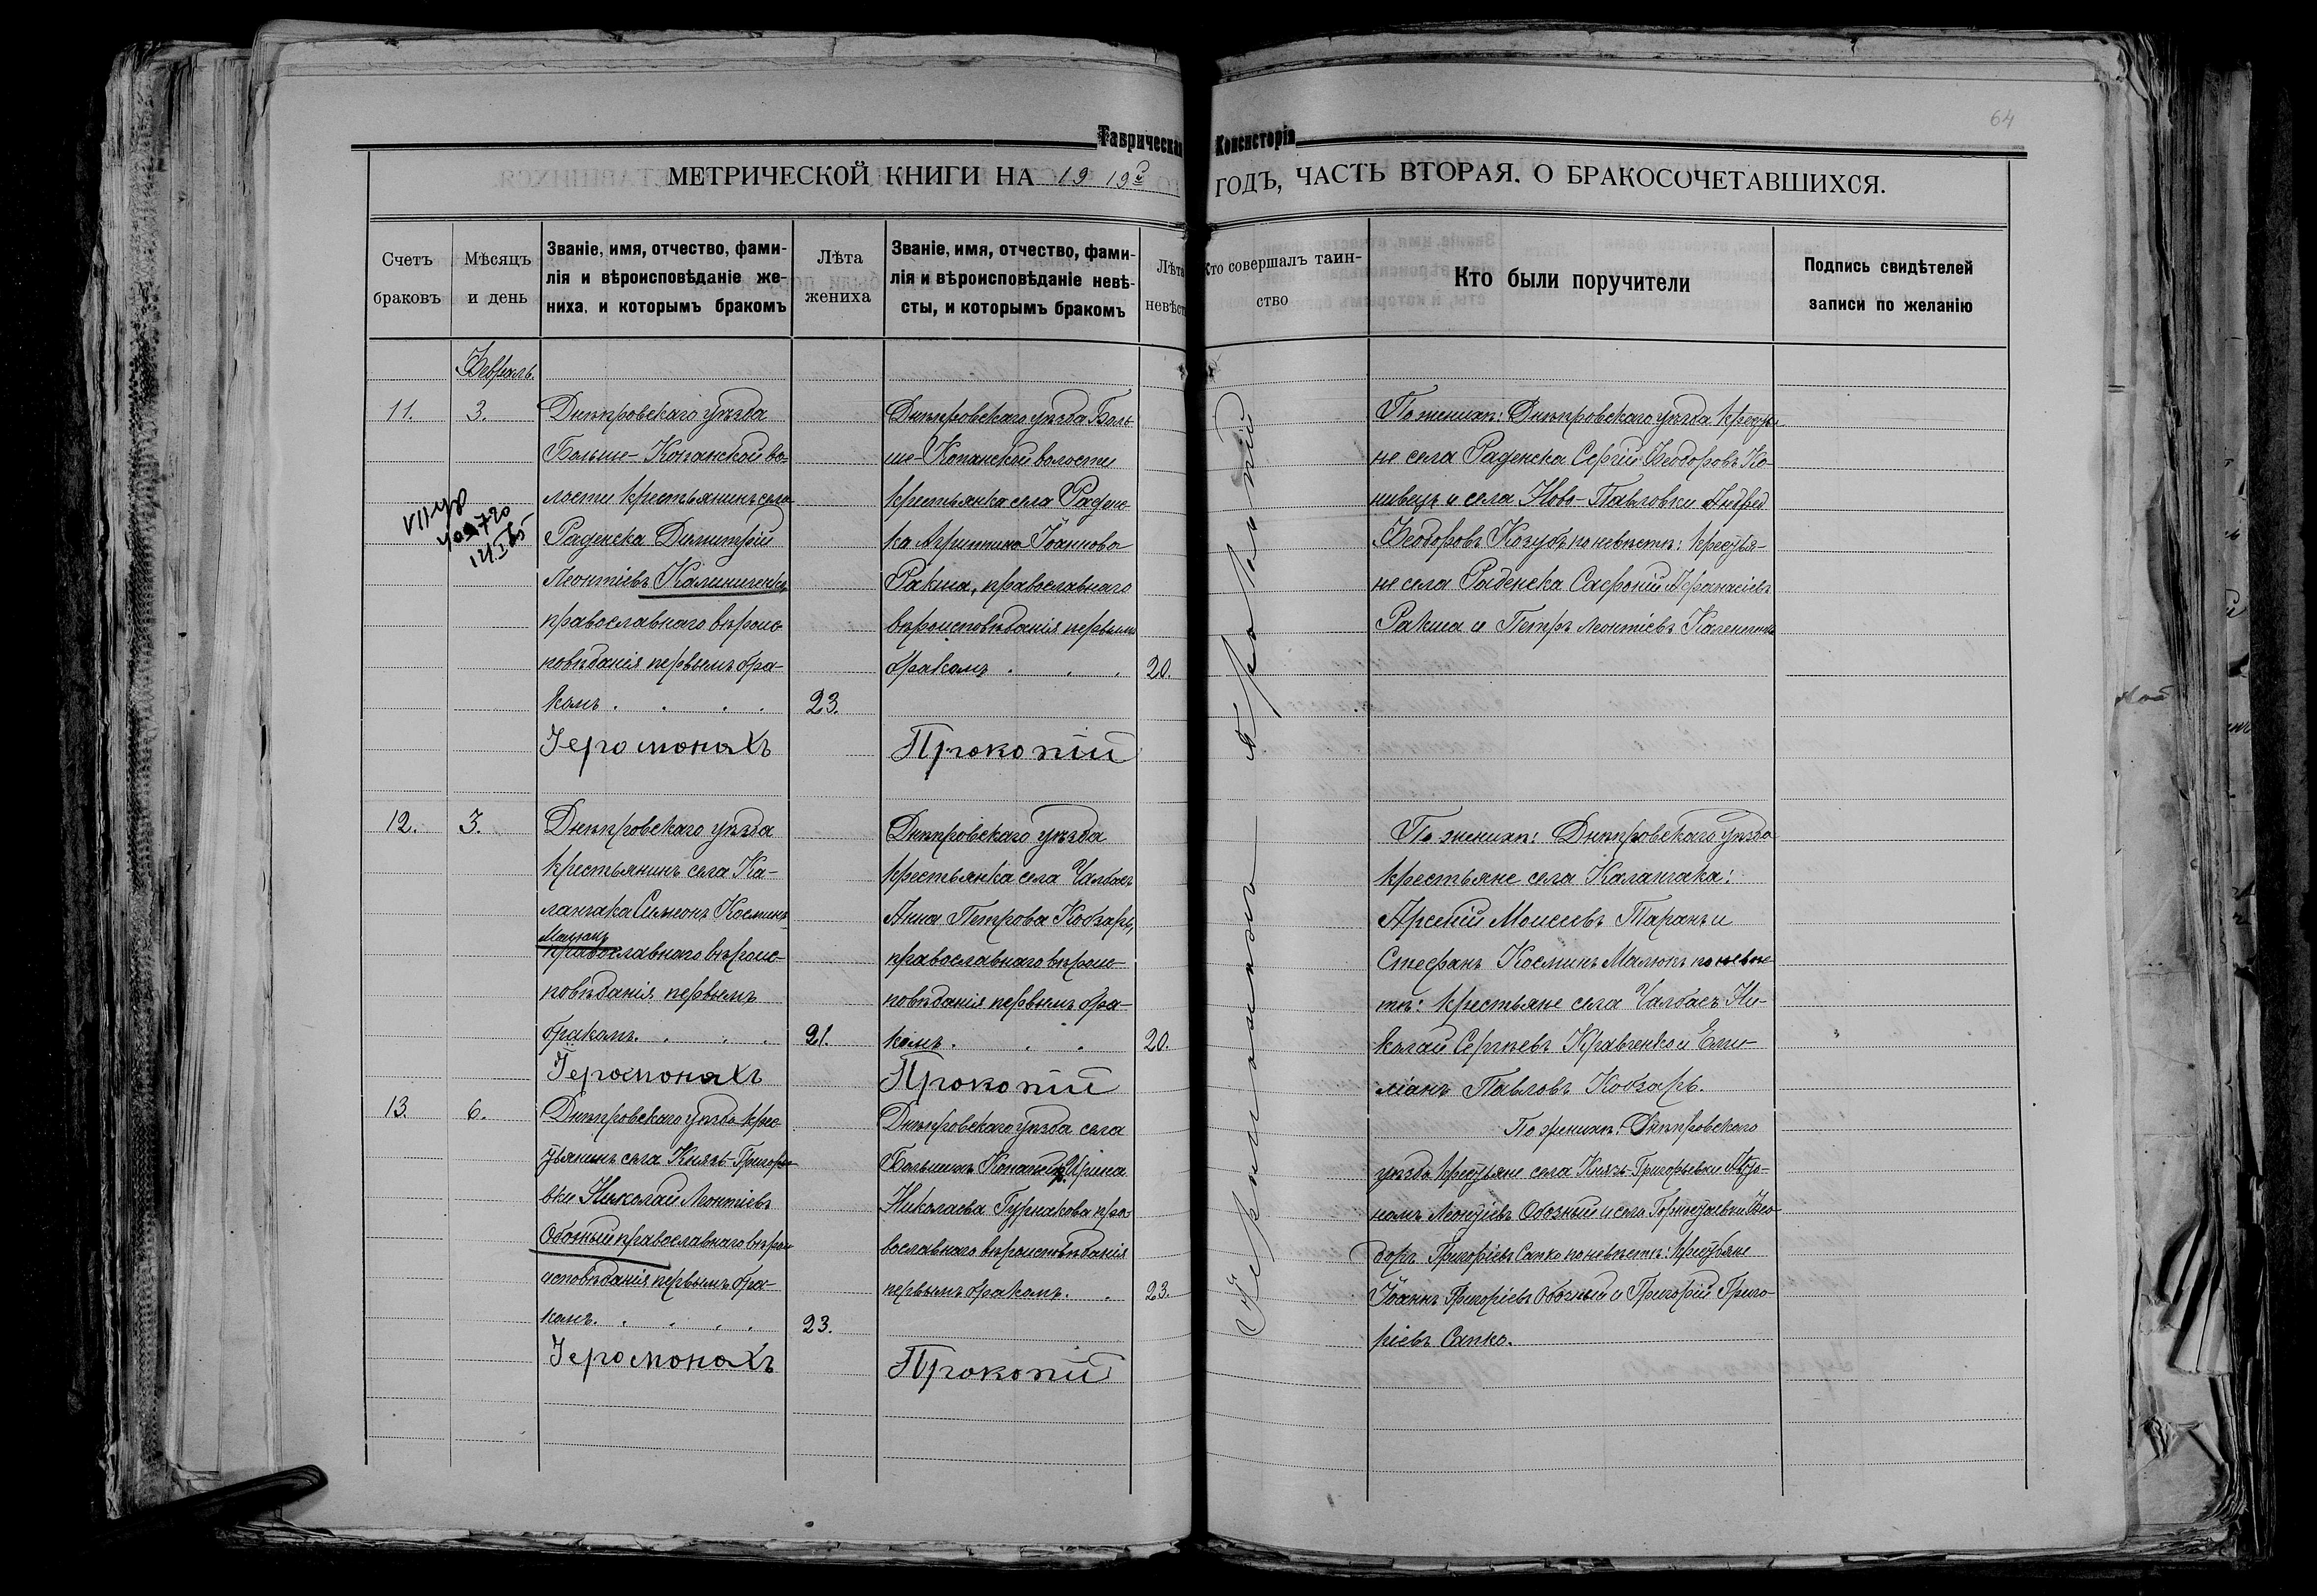 64
Таврическая Консисторія
МЕТРИЧЕСКОЙ КНИГИ НА 1919й ГОДЪ, ЧАСТЬ ВТОРАЯ, О БРАКОСОЧЕТАВШИХСЯ.
Счетъ
браковъ
Мѣсяцъ
и день
Званіе, имя, отчество, фами-
лія и вѣроисповѣданіе же-
ниха, и которымъ бракомъ
Лѣта
жениха
Званіе, имя, отчество, фами-
лія и вѣроисповѣданіе невѣ-
сты, и которымъ бракомъ
Лѣта
невѣст
Кто совершалъ таин-
ство
Кто были поручители
Подпись свидѣтелей
записи по желанію
Февраль.
11.
3.
Днѣпровскаго уѣзда
Больше-Копанской во-
лости крестьянинъ села
Раденска Димитрій
Леонтіевъ Калиниченко,
православнаго вѣроис-
повѣданія первымъ бра-
комъ
23.
Іеромонахъ
Днѣпровскаго уѣзда Боль
ше-Копанской волости
крестьянка села Раденс
ка Агриппина Іоаннова
Ракша, православнаго
вѣроисповѣданія первымъ
бракомъ
20.
Прокопій
По женихѣ: Днѣпровскаго уѣзда крестья
не села Раденска Сергій Феодоровъ Ко-
нивецъ и села Ново-Павловки Андрей
Феодоровъ Козубъ по невѣстѣ: крестья-
не села Раденска Сафроній Афанасіевъ
Ракша и Петръ Леонтіевъ
12.
3.
Днѣпровскаго уѣзда
крестьянинъ села Ка-
ланчака Симеонъ Косминъ
Малюкъ
православнаго вѣроис-
повѣданія первымъ
бракомъ.
21.
Іеромонахъ
Днѣпровскаго уѣзда
крестьянка села Чалбасъ
Анна Петрова Кобзарь,
православнаго вѣроис-
повѣданія первымъ бра-
комъ.
20.
Прокопій
По женихѣ: Днѣпровскаго уѣзда
крестьяне села Каланчака:
Арсеній Моисеевъ Таранъ и
Стефанъ Косминъ Малюкъ по невѣс
тѣ: крестьяне села Чалбасъ Ни-
колай Сергѣевъ Кравченко и Еми-
ліанъ Павловъ Кобзарь.
13.
6.
Днѣпровскаго уѣзда крес
тьянинъ села Князь-Григорье
вки Николай Леонтіевъ
Обозный православнаго вѣрои
исповѣданія первымъ бра-
комъ.
23.
Іеромонахъ
Днѣпровскаго уѣзда села
Большихъ Копаней Ирина
Николаева Гурнакова пра
вославнаго вѣроисповѣданія
первымъ бракомъ.
23.
Прокопій
По женихѣ: Днѣпровскаго
уѣзда крестьяне села Князь-Григорьевки
Леонтіевъ Обозный и села Горностаевки Фео
доръ Григоріевъ Сапко по невѣстѣ: крестьяне
Іоаннъ Григоріевъ Обозный и Григорій Григо-
ріевъ Сапко.
Іеромонахъ Прокопій